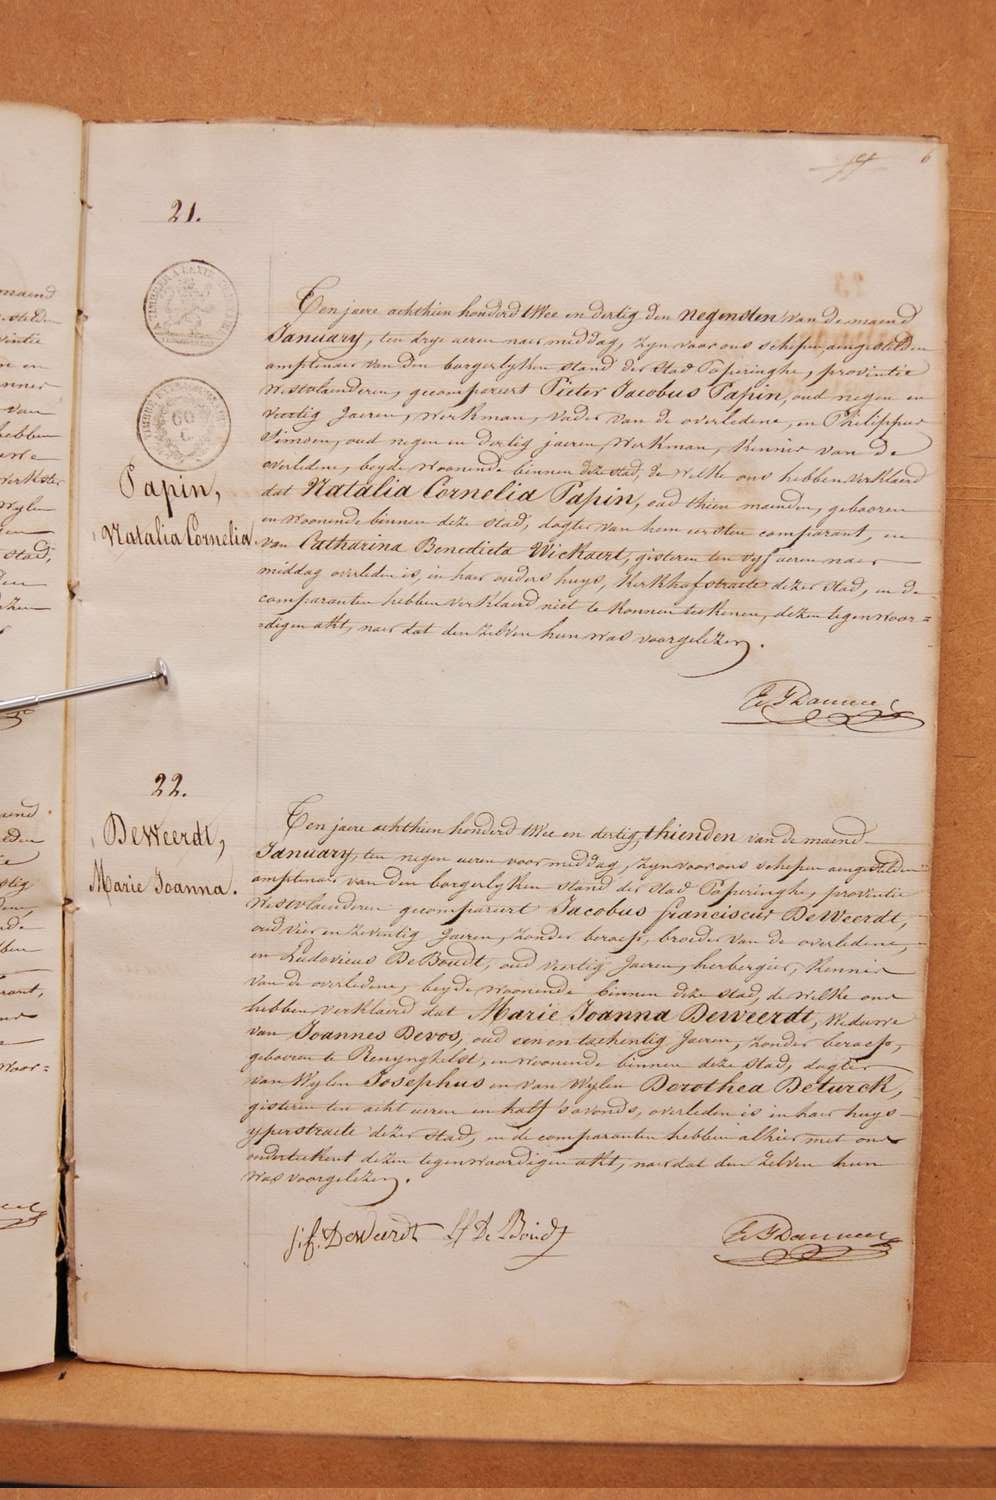 6
21.
Papin,
Natalia Cornelia.
Ten jaere achthien honderd twee en dertig den negensten van de maend
January, ten drye ueren naer middag, zyn voor ons schepen, aengestelden
amptenaer van den borgerlyken stand der stad Poperinghe, provintie
Westvlaenderen, gecompareert Pieter Jacobus Papin, oud negen en
veertig Jaeren, werkman, vader van de overledene, en Philippus
Simoen, oud negen en dertig jaeren, werkman, kennis van de
overledene, beyde woonende binnen deze stad, de welke ons hebben verklaerd
dat Natalia Cornelia Papin, oud thien maenden, gebooren
en woonende binnen deze stad, dogter van hem eersten comparant, en
van Catharina Benedicta Wickaert, gisteren ten vyf ueren naer
middag overleden is, in haer ouders huys, Kerkhofstraete dezer stad, en de
comparanten hebben verklaerd niet te konnen teekenen, dezen tegenwoor=
=digen akt, naer dat den zelven hun was voorgelezen.
22.
DeWeerdt,
Marie Joanna.
Ten jaere achthien honderd twee en dertig, thienden van de maend
January, ten negen ueren voor middag, zyn voor ons schepen aengestelden
amptenaer van den borgerlyken stand der stad Poperinghe, provintie
Westvlaenderen gecompareert Jacobus franciscus DeWeerdt,
oud vier en zeventig Jaeren, zonder beroep, broeder van de overledene,
en Ludovicus DeBoudt, oud veertig Jaeren, herbergier, kennis
van de overledene, beyde woonende binnen deze stad, de welke ons
hebben verklaerd dat Marie Joanna Deweerdt, weduwe
van Joannes Devos, oud een en tachentig Jaeren, zonder beroep,
gebooren te Renynghelst, en woonende binnen deze stad, dogter
van wylen Josephus en van wylen Dorothea Deturck,
gisteren ten acht ueren en half s'avonds, overleden is in haer huys
yperstraete dezer stad, en de comparanten hebben alhier met ons
onderteekent dezen tegenwoordigen akt, naer dat den zelven hun
was voorgelezen.
j: f: DeWeerdt L De Boudt